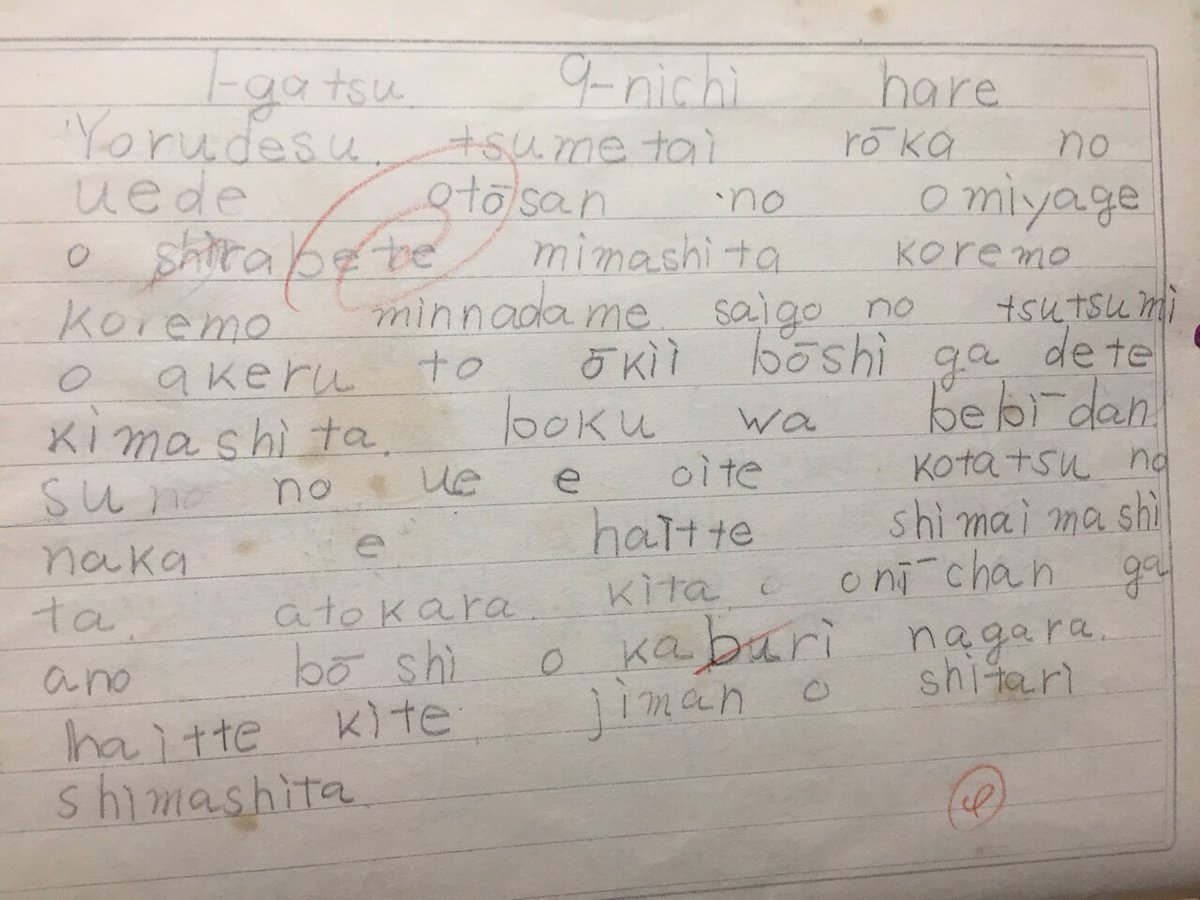 1-gatsu 9-nichi hare
Yorudesu. tsumetai rōka no
uede otōsan no omiyage
o shirabete mimashita koremo
koremo minnadame. saigo no tsutsumi
o akeru to ōkii bōshi ga dete
kimashita. boku wa bebīdan
su no ue e oite kotatsu no
naka e haitte shimaimashi
ta. atokara. kita. onī-chan ga
ano bōshi o kaburi nagara.
haitte kite. jiman o shitari
shimashita.